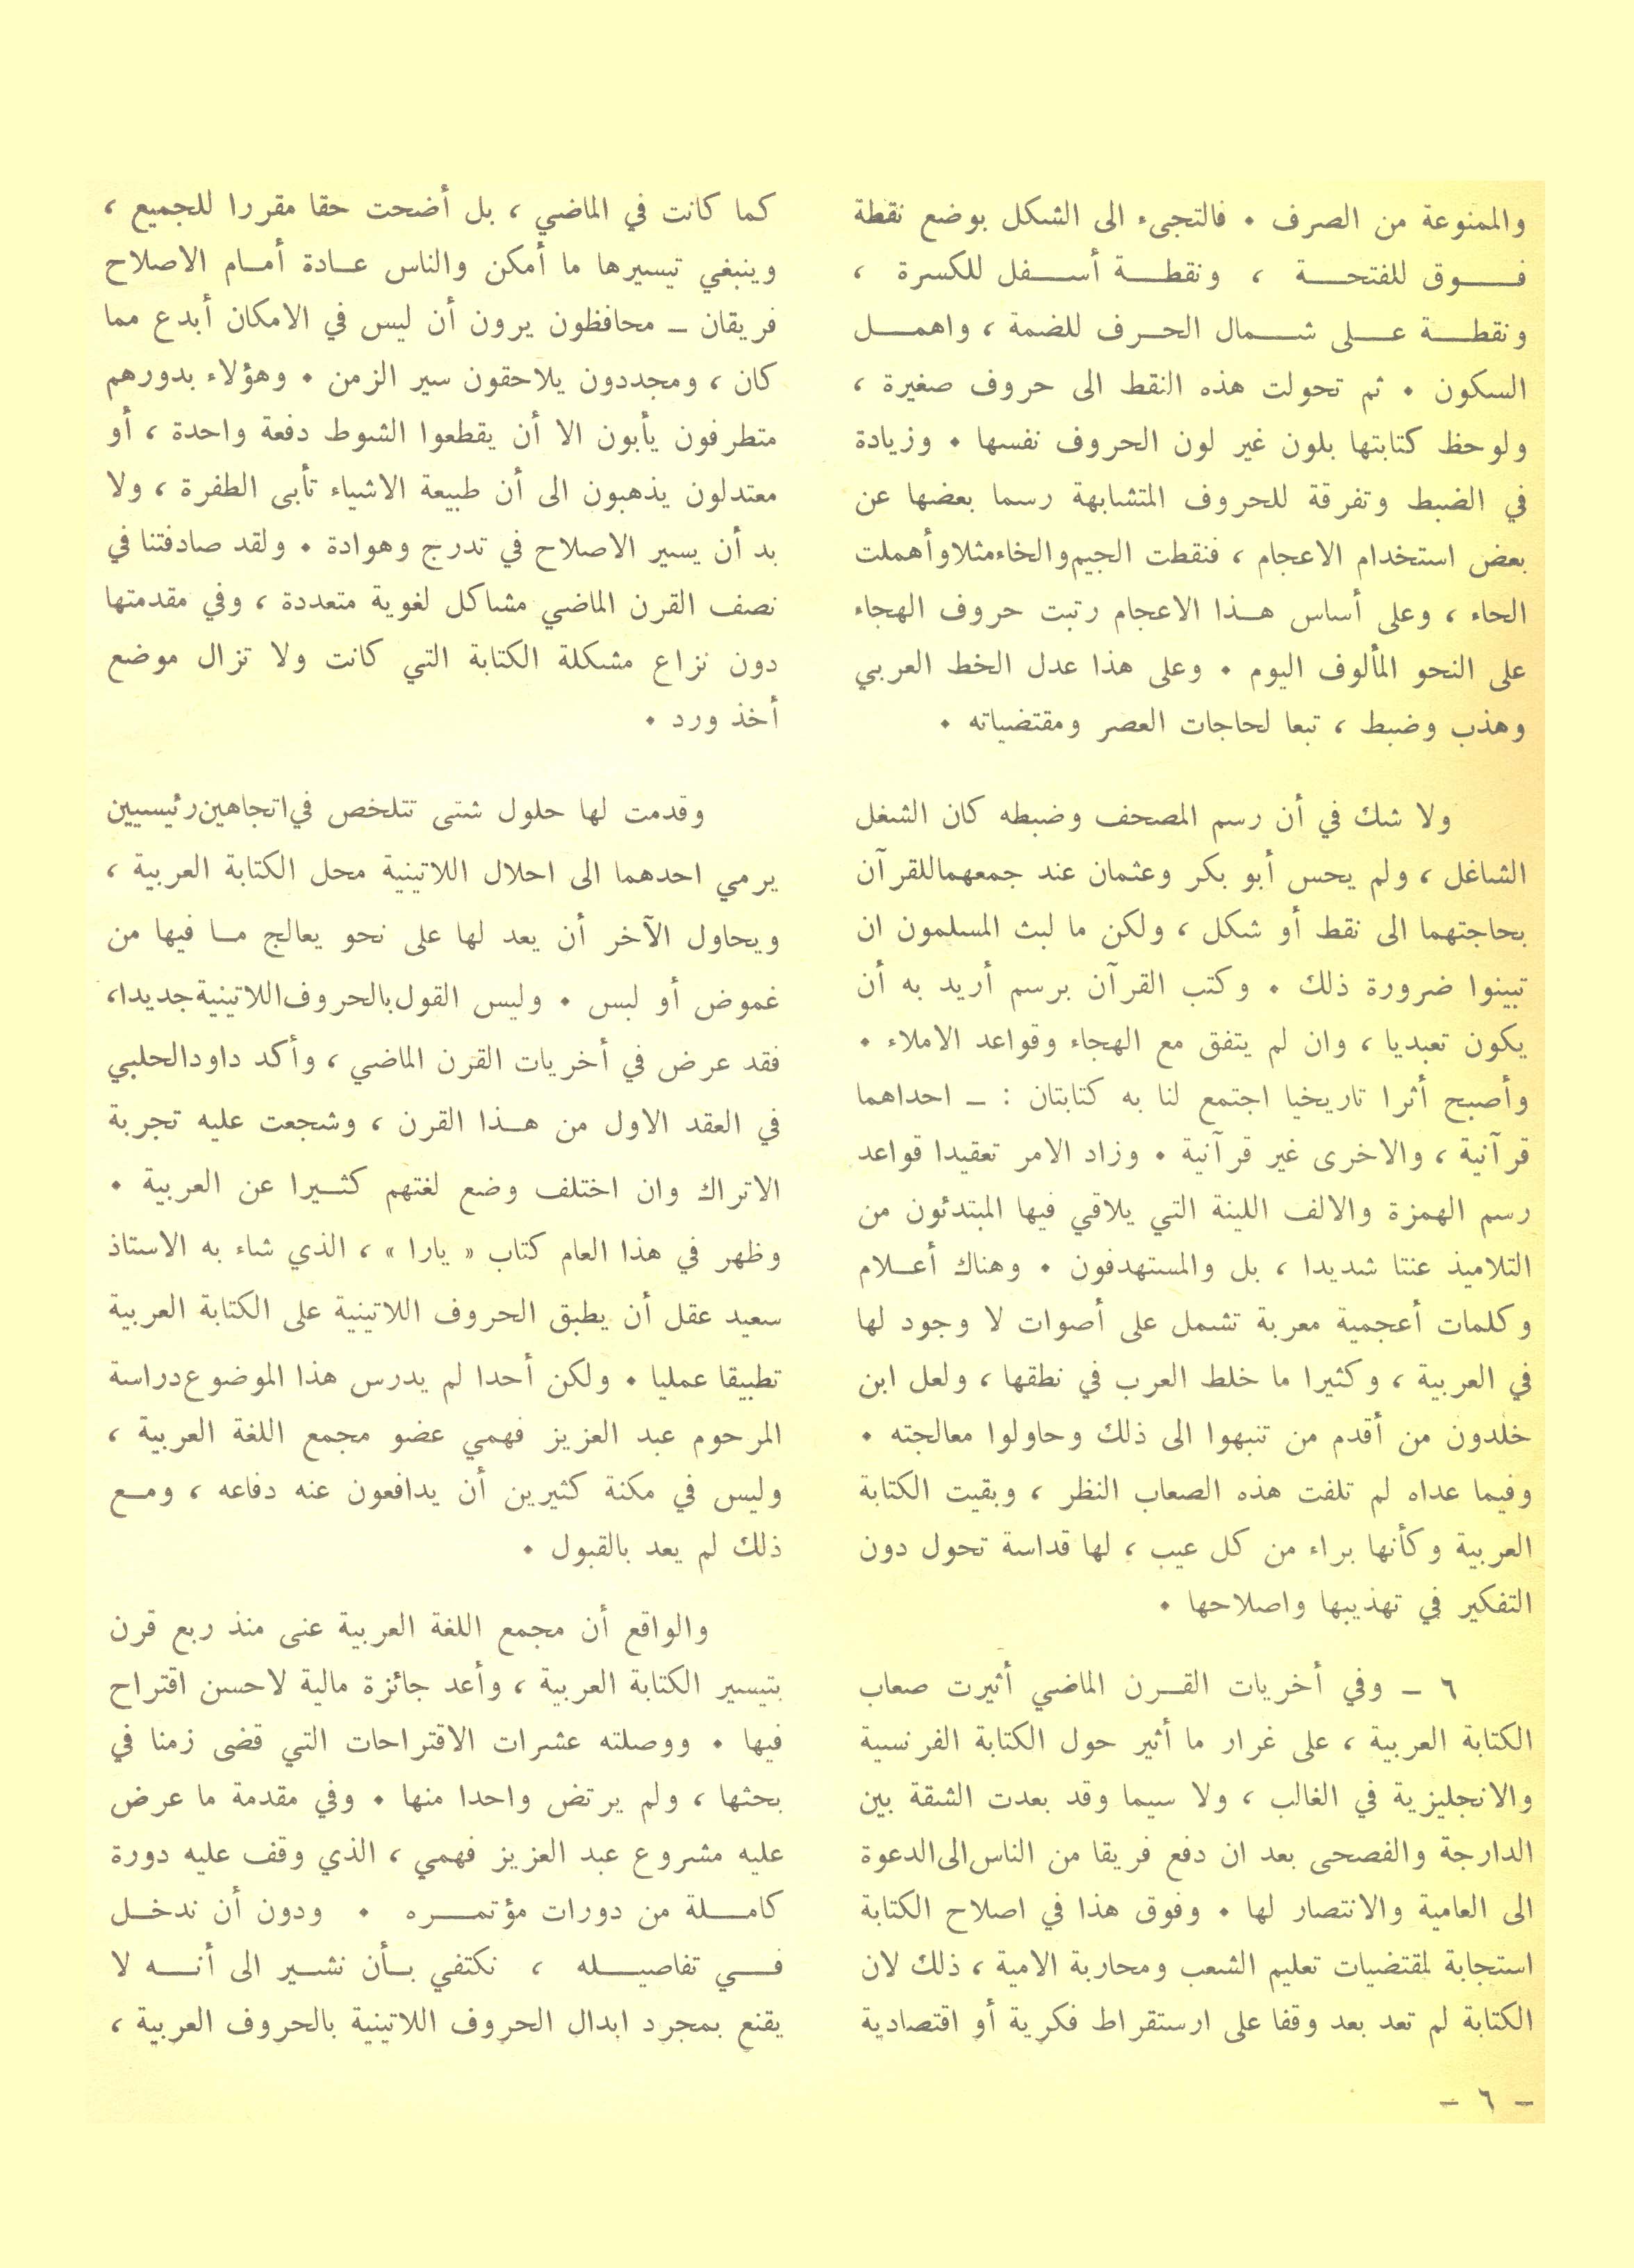 والممنوعة من الصرف . فالتجىء الى الشكل بوضع نقطة
فوق للفتحة ، ونقطة أسفل للكسرة ،
ونقطة على شمال الحرف للضمة ، واهمل
السكون . ثم تحولت هذه النقط الى حروف صغيرة ،
ولوحظ كتابتها بلون غير لون الحروف نفسها . وزيادة
في الضبط وتفرقة للحروف المتشابهة رسما بعضها عن
بعض استخدام الاعجام ، فنقطت الجيم والخاء مثلا وأهملت
الحاء ، وعلى أساس هذا الاعجام رتبت حروف الهجاء
على النحو المألوف اليوم . وعلى هذا عدل الخط العربي
وهذب وضبط ، تبعا لحاجات العصر ومقتضياته .
ولا شك في أن رسم المصحف وضبطه كان الشغل
الشاغل ، ولم يحس أبو بكر وعثمان عند جمعهما للقرآن
بحاجتهما الى نقط أو شكل ، ولكن ما لبث المسلمون ان
تبينوا ضرورة ذلك . وكتب القرآن برسم أريد به أن
يكون تعبديا ، وان لم يتفق مع الهجاء وقواعد الاملاء .
وأصبح أثرا تاريخيا اجتمع لنا به كتابتان : ـ احداهما
قرآنية ، والاخرى غير قرآنية . وزاد الامر تعقيدا قواعد
رسم الهمزة والالف اللينة التي يلاقي فيها المبتدئون من
التلاميذ عنتا شديدا ، بل والمستهدفون . وهناك أعلام
وكلمات أعجمية معربة تشمل على أصوات لا وجود لها
في العربية ، وكثيرا ما خلط العرب في نطقها ، ولعل ابن
خلدون من أقدم من تنبهوا الى ذلك وحاولوا معالجته .
وفيما عداه لم تلفت هذه الصعاب النظر ، وبقيت الكتابة
العربية وكأنها براء من كل عيب ، لها قداسة تحول دون
التفكير في تهذيبها واصلاحها .
٦ ـ وفي أخريات القرن الماضي أثيرت صعاب
الكتابة العربية ، على غرار ما أثير حول الكتابة الفرنسية
والانجليزية في الغالب ، ولا سيما وقد بعدت الشقة بين
الدارجة والفصحى بعد ان دفع فريقا من الناس الى الدعوة
الى العامية والانتصار لها . وفوق هذا في اصلاح الكتابة
استجابة لمقتضيات تعليم الشعب ومحاربة الامية ، ذلك لان
الكتابة لم تعد بعد وقفا على ارستقراط فكرية أو اقتصادية
كما كانت في الماضي ، بل أضحت حقا مقررا للجميع ،
وينبغي تيسيرها ما أمكن والناس عادة أمام الاصلاح
فريقان ـ محافظون يرون أن ليس في الامكان أبدع مما
كان ، ومجددون يلاحقون سير الزمن . وهؤلاء بدورهم
متطرفون يأبون الا أن يقطعوا الشوط دفعة واحدة ، أو
معتدلون يذهبون الى أن طبيعة الاشياء تأبى الطفرة ، ولا
بد أن يسير الاصلاح في تدرج وهوادة . ولقد صادفتنا في
نصف القرن الماضي مشاكل لغوية متعددة ، وفي مقدمتها
دون نزاع مشكلة الكتابة التي كانت ولا تزال موضع
أخذ ورد .
وقدمت لها حلول شتى تتلخص في اتجاهين رئيسيين
يرمي احدهما الى احلال اللاتينية محل الكتابة العربية ،
ويحاول الآخر أن يعد لها على نحو يعالج ما فيها من
غموض أو لبس . وليس القول بالحروف اللاتينية جديدا،
فقد عرض في أخريات القرن الماضي ، وأكد داود الحلبي
في العقد الاول من هذا القرن ، وشجعت عليه تجربة
الاتراك وان اختلف وضع لغتهم كثيرا عن العربية .
وظهر في هذا العام كتاب « يارا » ، الذي شاء به الاستاذ
سعيد عقل أن يطبق الحروف اللاتينية على الكتابة العربية
تطبيقا عمليا . ولكن أحدا لم يدرس هذا الموضوع دراسة
المرحوم عبد العزيز فهمي عضو مجمع اللغة العربية ،
وليس في مكنة كثيرين أن يدافعون عنه دفاعه ، ومع
ذلك لم يعد بالقبول .
والواقع أن مجمع اللغة العربية عنى منذ ربع قرن
بتيسير الكتابة العربية ، وأعد جائزة مالية لاحسن اقتراح
فيها . ووصلته عشرات الاقتراحات التي قضى زمنا في
بحثها ، ولم يرتض واحدا منها . وفي مقدمة ما عرض
عليه مشروع عبد العزيز فهمي ، الذي وقف عليه دورة
كاملة من دورات مؤتمره . ودون أن ندخل
في تفاصيله ، نكتفي بأن نشير الى أنه لا
يقنع بمجرد ابدال الحروف اللاتينية بالحروف العربية ،
ـ ٦ ـ